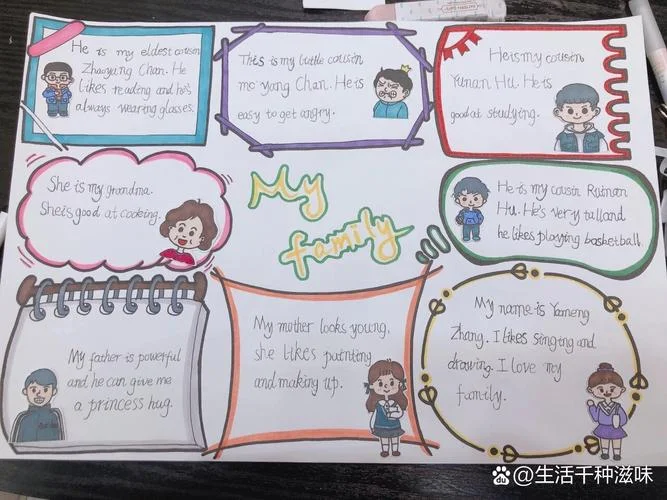 He is my eldest cousin
Zhaoyang Chan. He
likes reading and he's
always wearing glasses.
This is my little cousin
mo yang Chan. He is
easy to get angry.
He is my cousin
Yunan Hu. He is
good at studying.
She is my grandma.
She is good at cooking.
My
family
He is my cousin Rainan
Hu. He's very tall and
he likes playing basketball.
My father is powerful
and he can give me
a princess hug.
My mother looks young,
she likes painting
and making up.
My name is Yameng
Zhang. I likes singing and
drawing. I love my
family.
@生活千种滋味